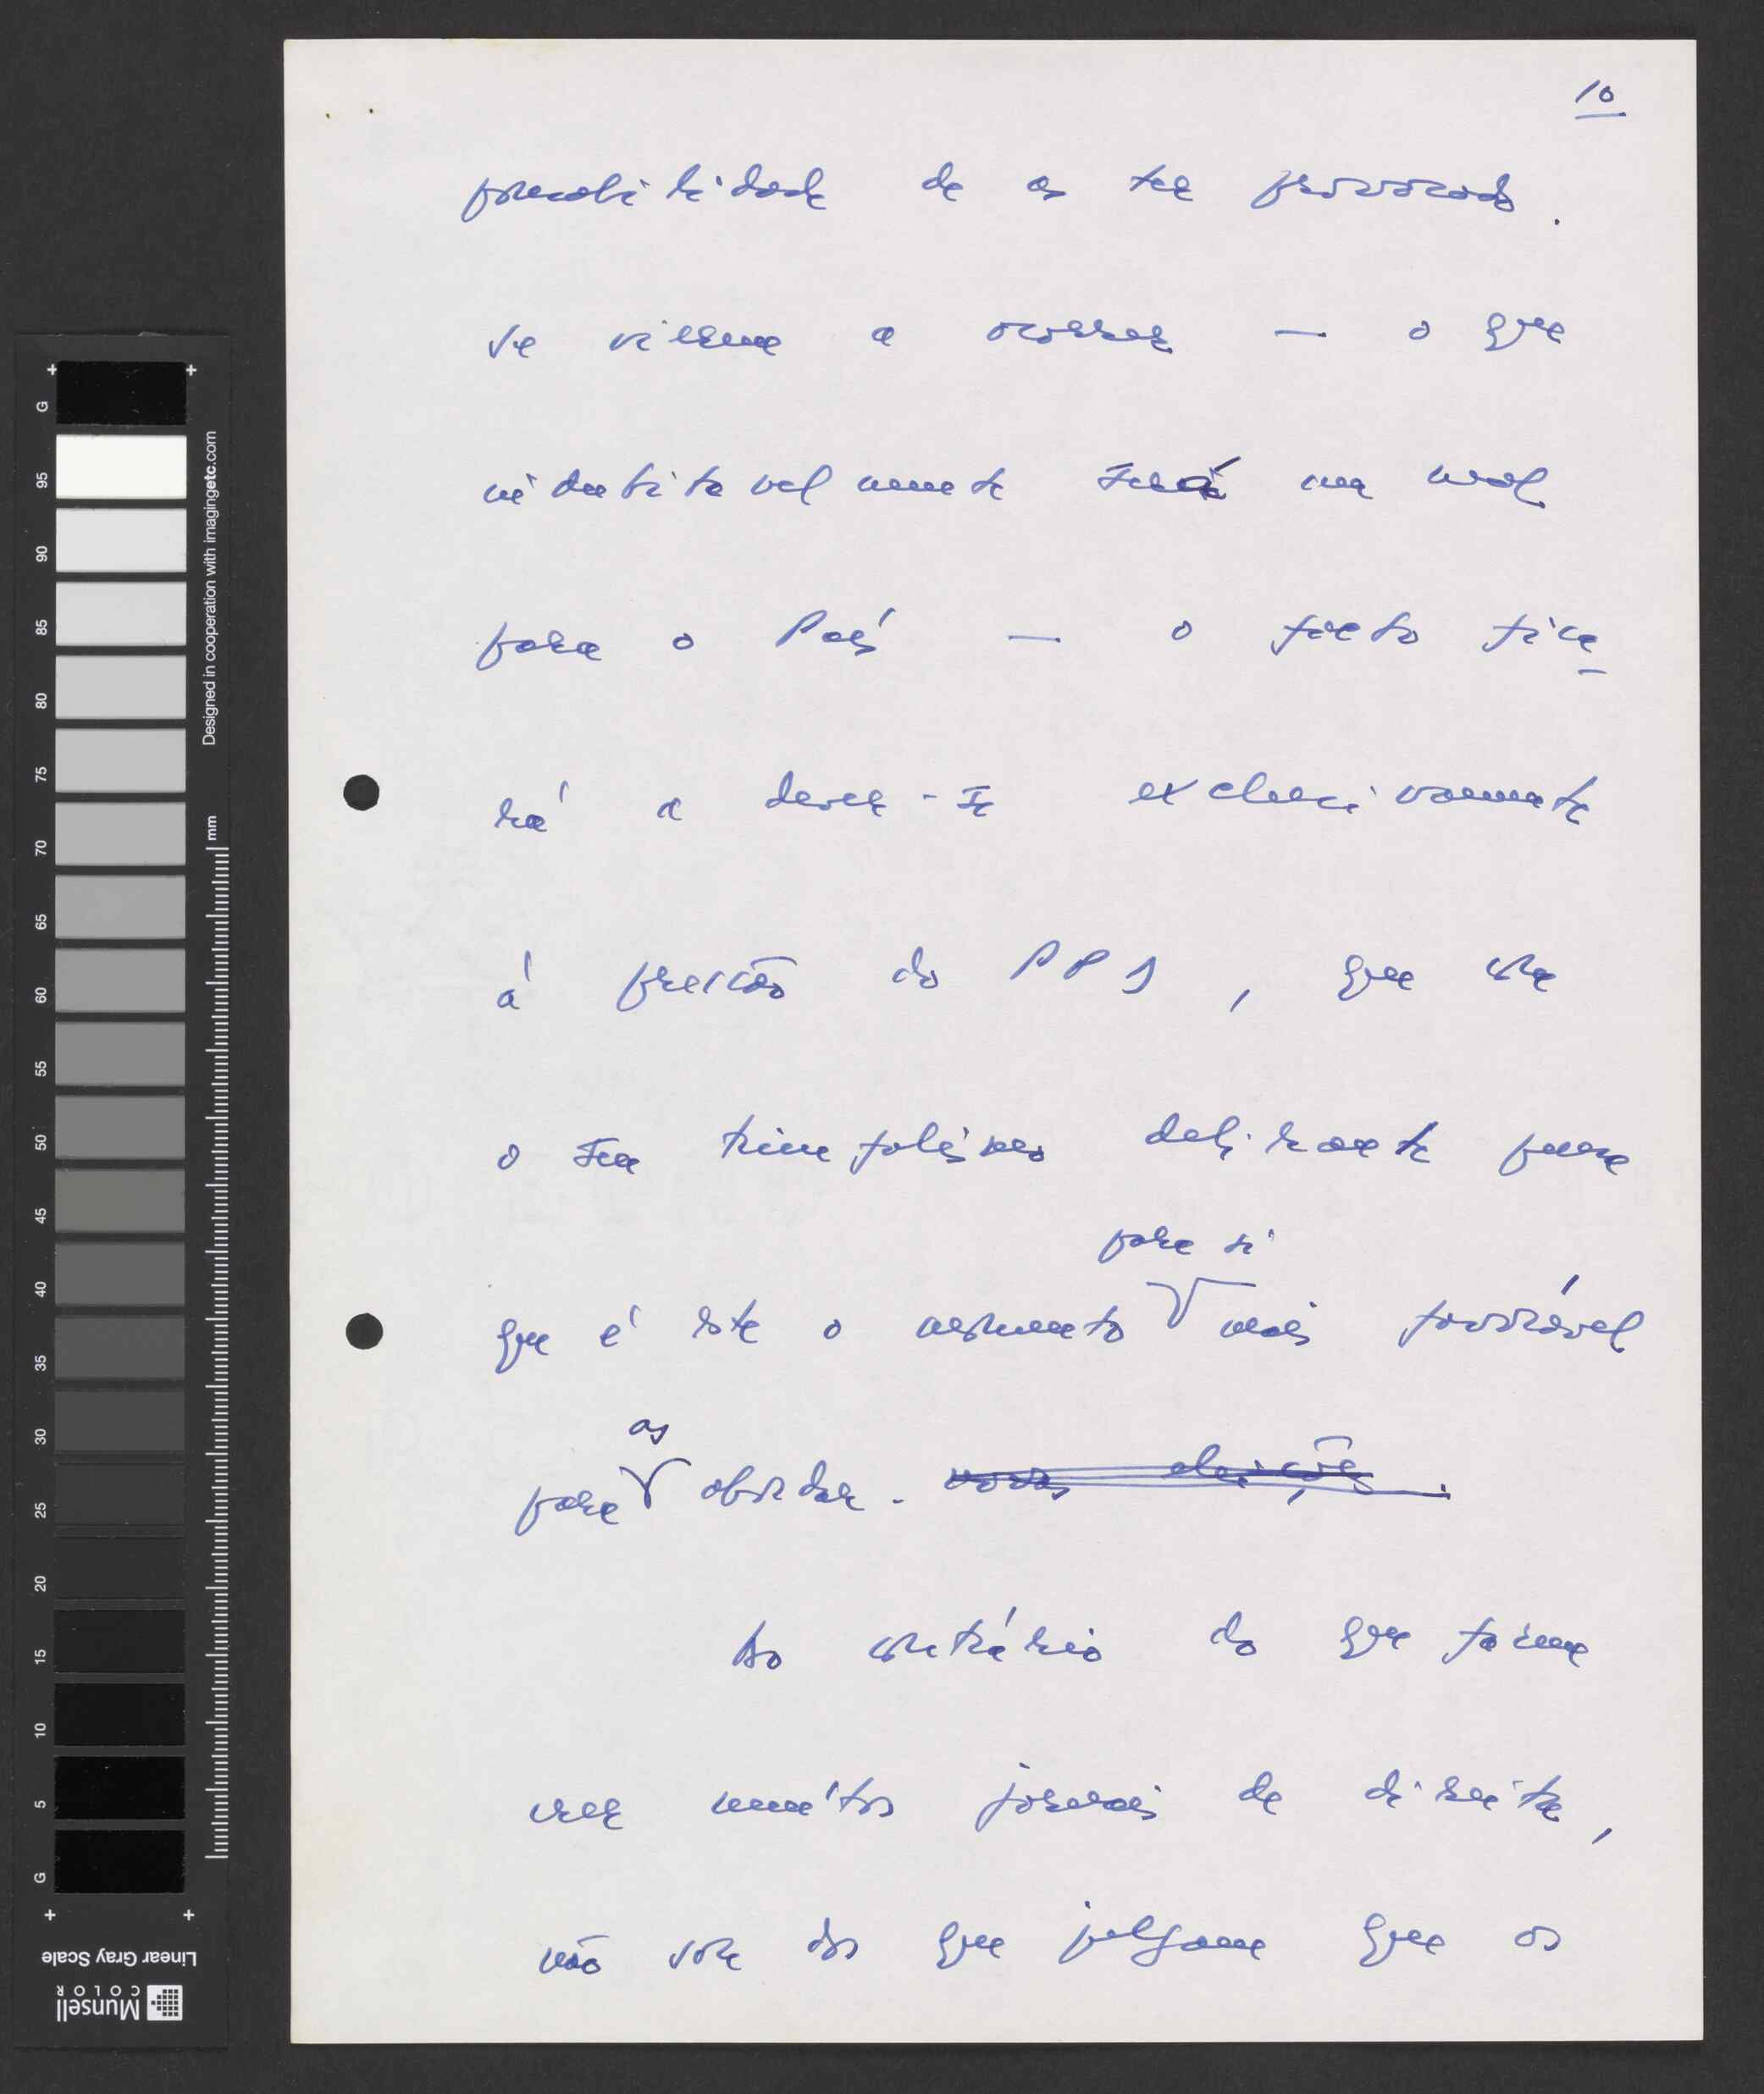 10
possibilidade de as ter provocado.
Se vierem a ocorrer — o que
indubitavelmente será um mal
para o País — o facto fica-
rá a dever-se exclusivamente
à pressão do PPD, que crê
o seu triunfalismo delirante pensa
que é este o momento para si mais favorável
para as abordar. novas eleições.
Ao contrário do que fazem
crer muitos jornais de direita,
não sou dos que julgam que os
G 95 90 85 80 75 70 65 60 55 50 45 40 35 30 25 20 15 10 5 G
Designed in cooperation with imagingetc.com
mm
Linear Gray Scale
Munsell
COLOR